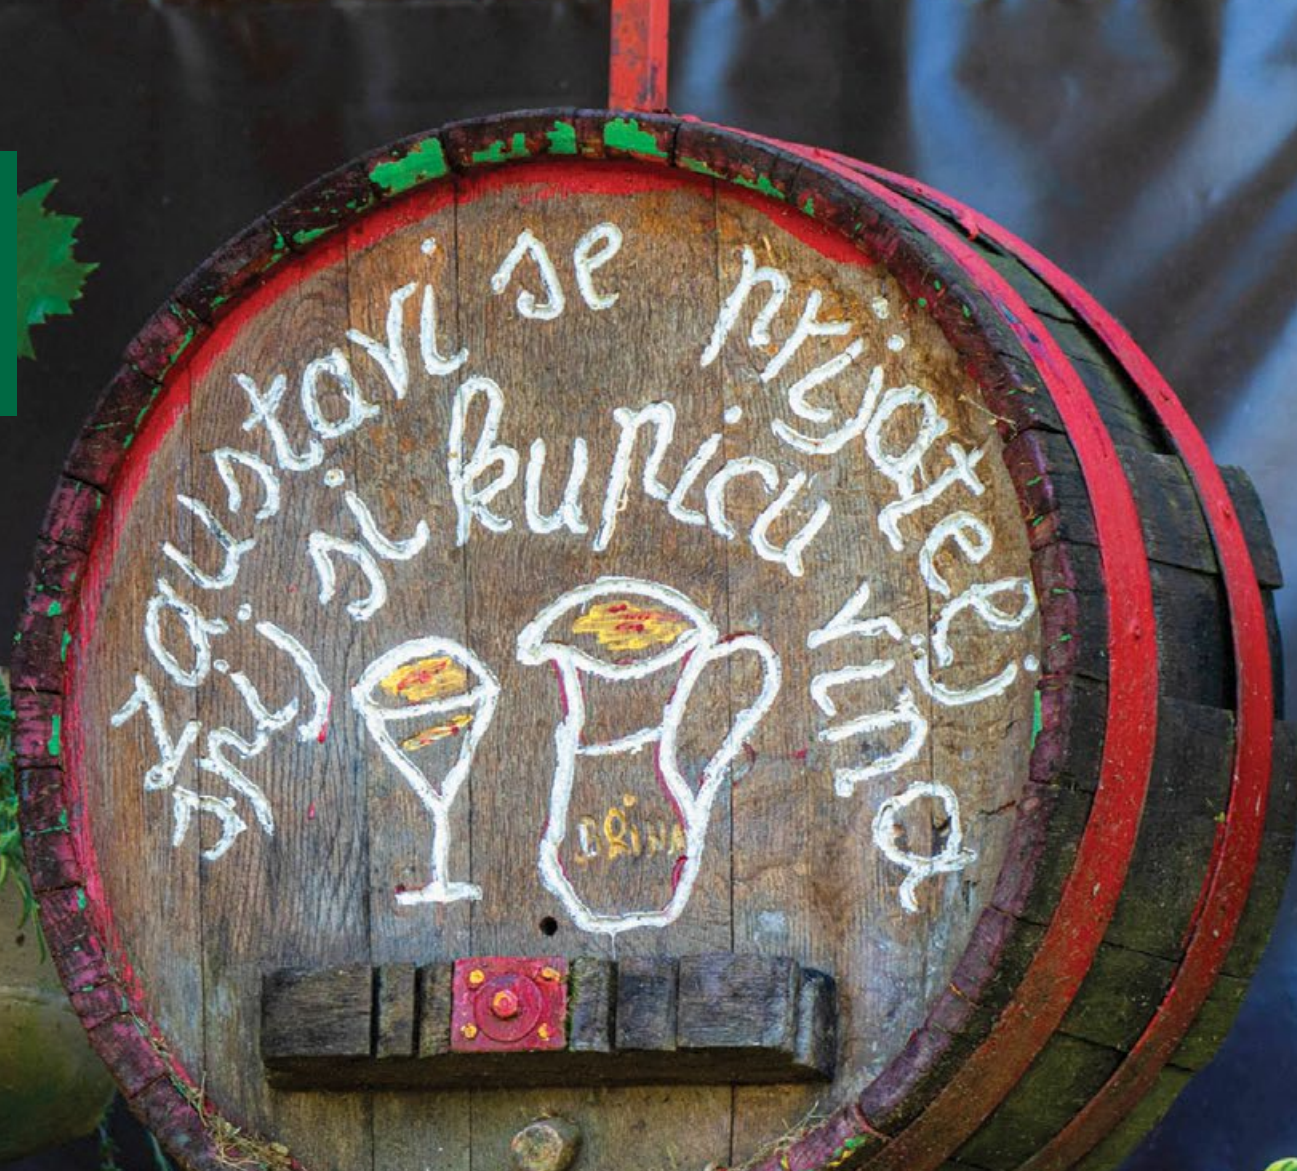 Zaustavi se prijatelj
spij si kupicu vina